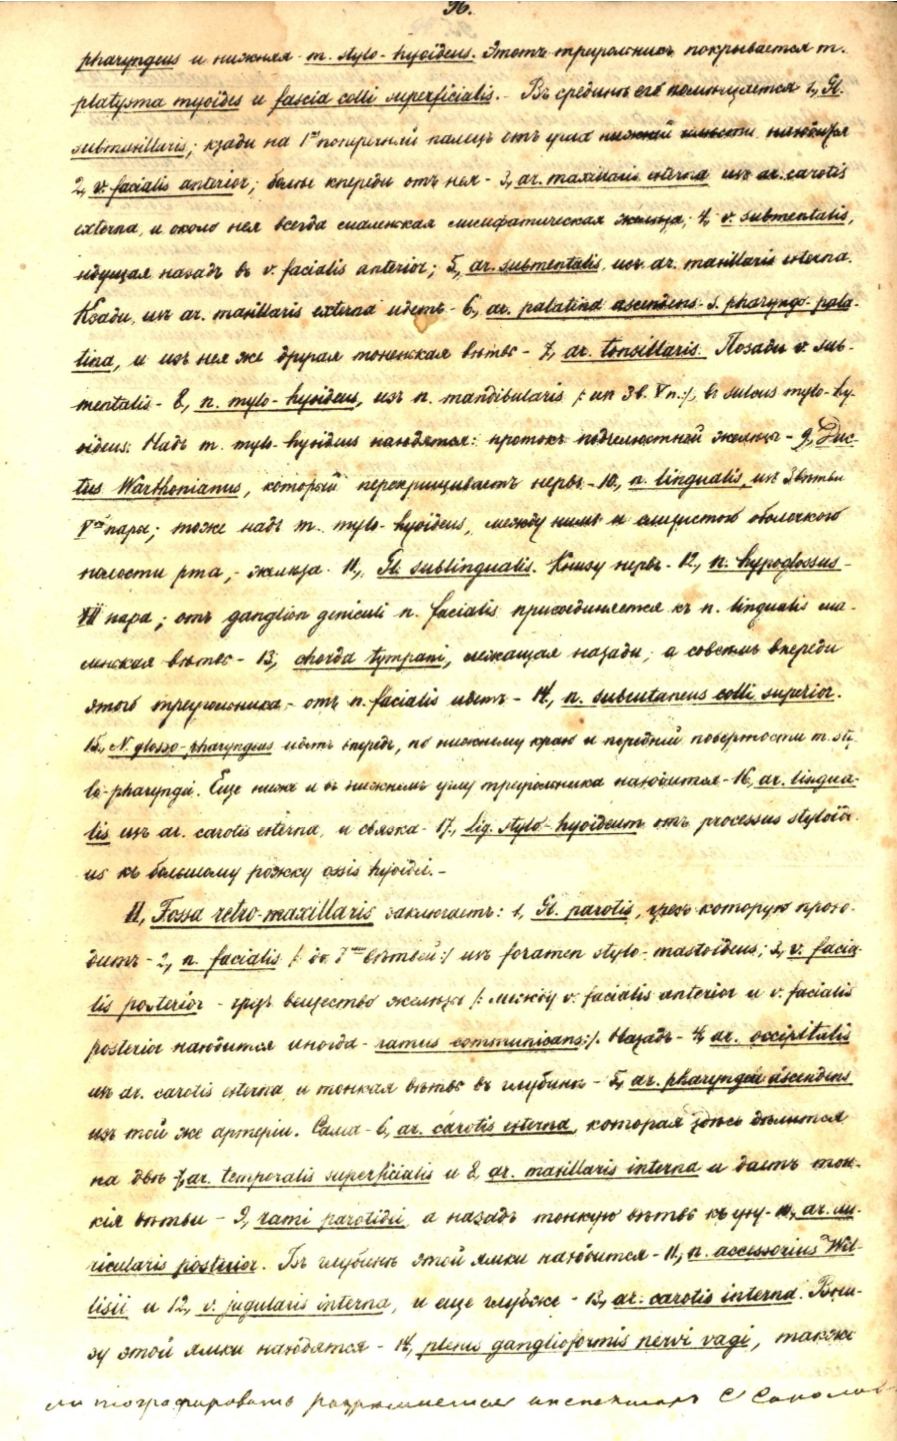 96.
pharyngeus и нижняя - m. stylo-hyoideus. Этотъ треугольникъ покрывается m.
platysma myoides и fascia colli superficialis. - Въ срединѣ его помѣщается 1, Gl.
submaxillaris; кзади на 1ᵐ поперечный палецъ отъ угла нижней челюсти находится
2, v. facialis anterior; болѣе кпереди отъ нея - 3, ar. maxillaris externa изъ ar. carotis
externa, и около нея всегда маленькая лимфатическая железа; 4, v. submentalis,
идущая назадъ въ v. facialis anterior; 5, ar. submentalis, изъ ar. maxillaris externa.
Кзади, изъ ar. maxillaris externa идетъ - 6, ar. palatina ascendens - s. pharyngo-pala-
tina, и изъ нея же другая тоненькая вѣтвь - 7, ar. tonsillaris. Позади v. sub-
mentalis - 8, n. mylo-hyoideus, изъ n. mandibularis /: из 3 в. V п.:/, въ sulcus mylo-hy-
oideus. Надъ m. mylo-hyoideus находятся: протокъ подчелюстной железы - 9, Duc-
tus Warthonianus, который перекрещиваетъ нервъ - 10, n. lingualis, изъ 3 вѣтви
Vᵒⁱ пары; тоже надъ m. mylo-hyoideus, между нимъ и слизистою оболочкою
полости рта, - железа - 11, Gl. sublingualis. Книзу нервъ - 12, n. hypoglossus -
XII пара; отъ ganglion geniculi n. facialis присоединяется къ n. lingualis ма-
ленькая вѣтвь - 13, chorda tympani, лежащая назади; а совсѣмъ впереди
этого треугольника - отъ n. facialis идетъ - 14, n. subcutaneus colli superior.
15, N. glosso-pharyngeus идетъ впередъ, по нижнему краю и передней поверхности m. sty-
lo-pharyngei. Еще ниже и въ нижнемъ углу треугольника находится - 16, ar. lingua-
lis изъ ar. carotis externa, и связка - 17, lig. stylo-hyoideum отъ processus styloide-
us къ большому рожку ossis hyoidei. -
II, Fossa retro-maxillaris заключаетъ: 1, Gl. parotis, чрезъ которую прохо-
дитъ - 2, n. facialis /: до 7ᵐⁱ вѣтвей:/ изъ foramen stylo-mastoideus; 3, v. facia-
lis posterior - чрезъ вещество железы /: между v. facialis anterior и v. facialis
posterior находится иногда - ramus communicans:/. Назадъ - 4, ar. occipitalis
изъ ar. carotis externa и тонкая вѣтвь въ глубинѣ - 5, ar. pharyngea ascendens
изъ той же артеріи. Сама - 6, ar. carotis externa, которая здѣсь дѣлится
на двѣ - 7, ar. temporalis superficialis и 8, ar. maxillaris interna и даетъ тон-
кія вѣтви - 9, rami parotidei, а назадъ тонкую вѣтвь къ уху - 10, ar. au-
ricularis posterior. Въ глубинѣ этой ямки находится - 11, n. accessorius Wil-
lisii и 12, v. jugularis interna, и еще глубже - 13, ar. carotis interna. Вни-
зу этой ямки находятся - 14, plexus ganglioformis nervi vagi, также
литографировать разрѣшается инспекторъ С Соколов